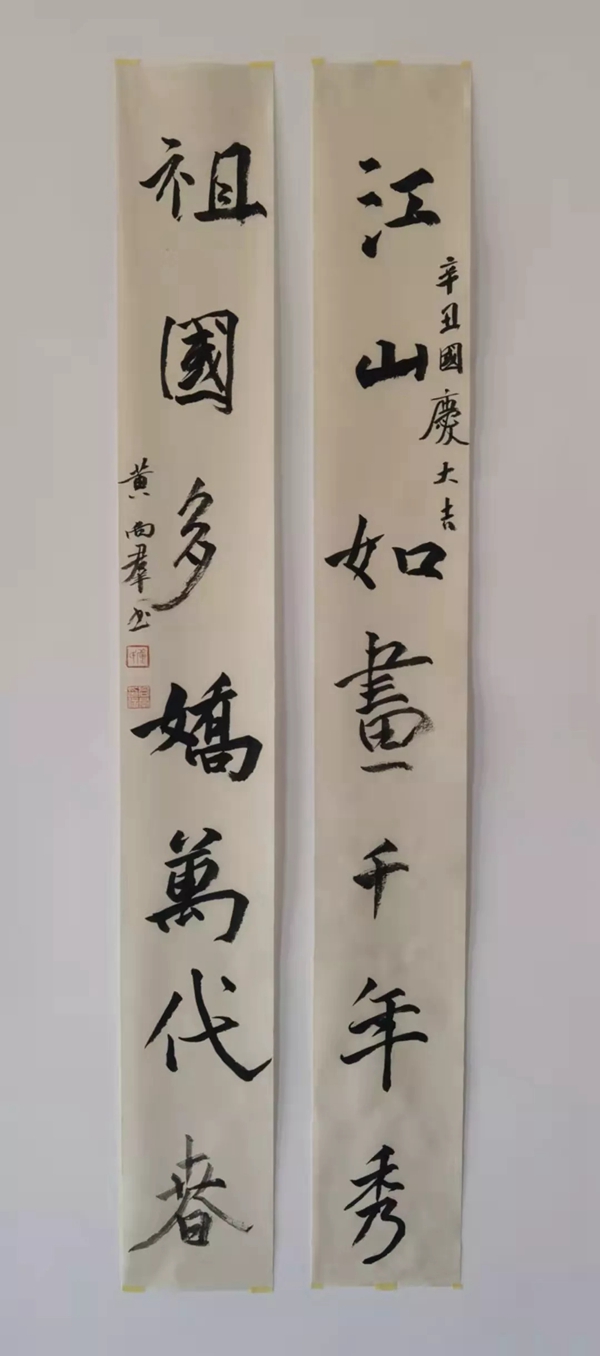 江山如畫千年秀
辛丑國慶大吉
祖國多嬌萬代春
黄尚群书